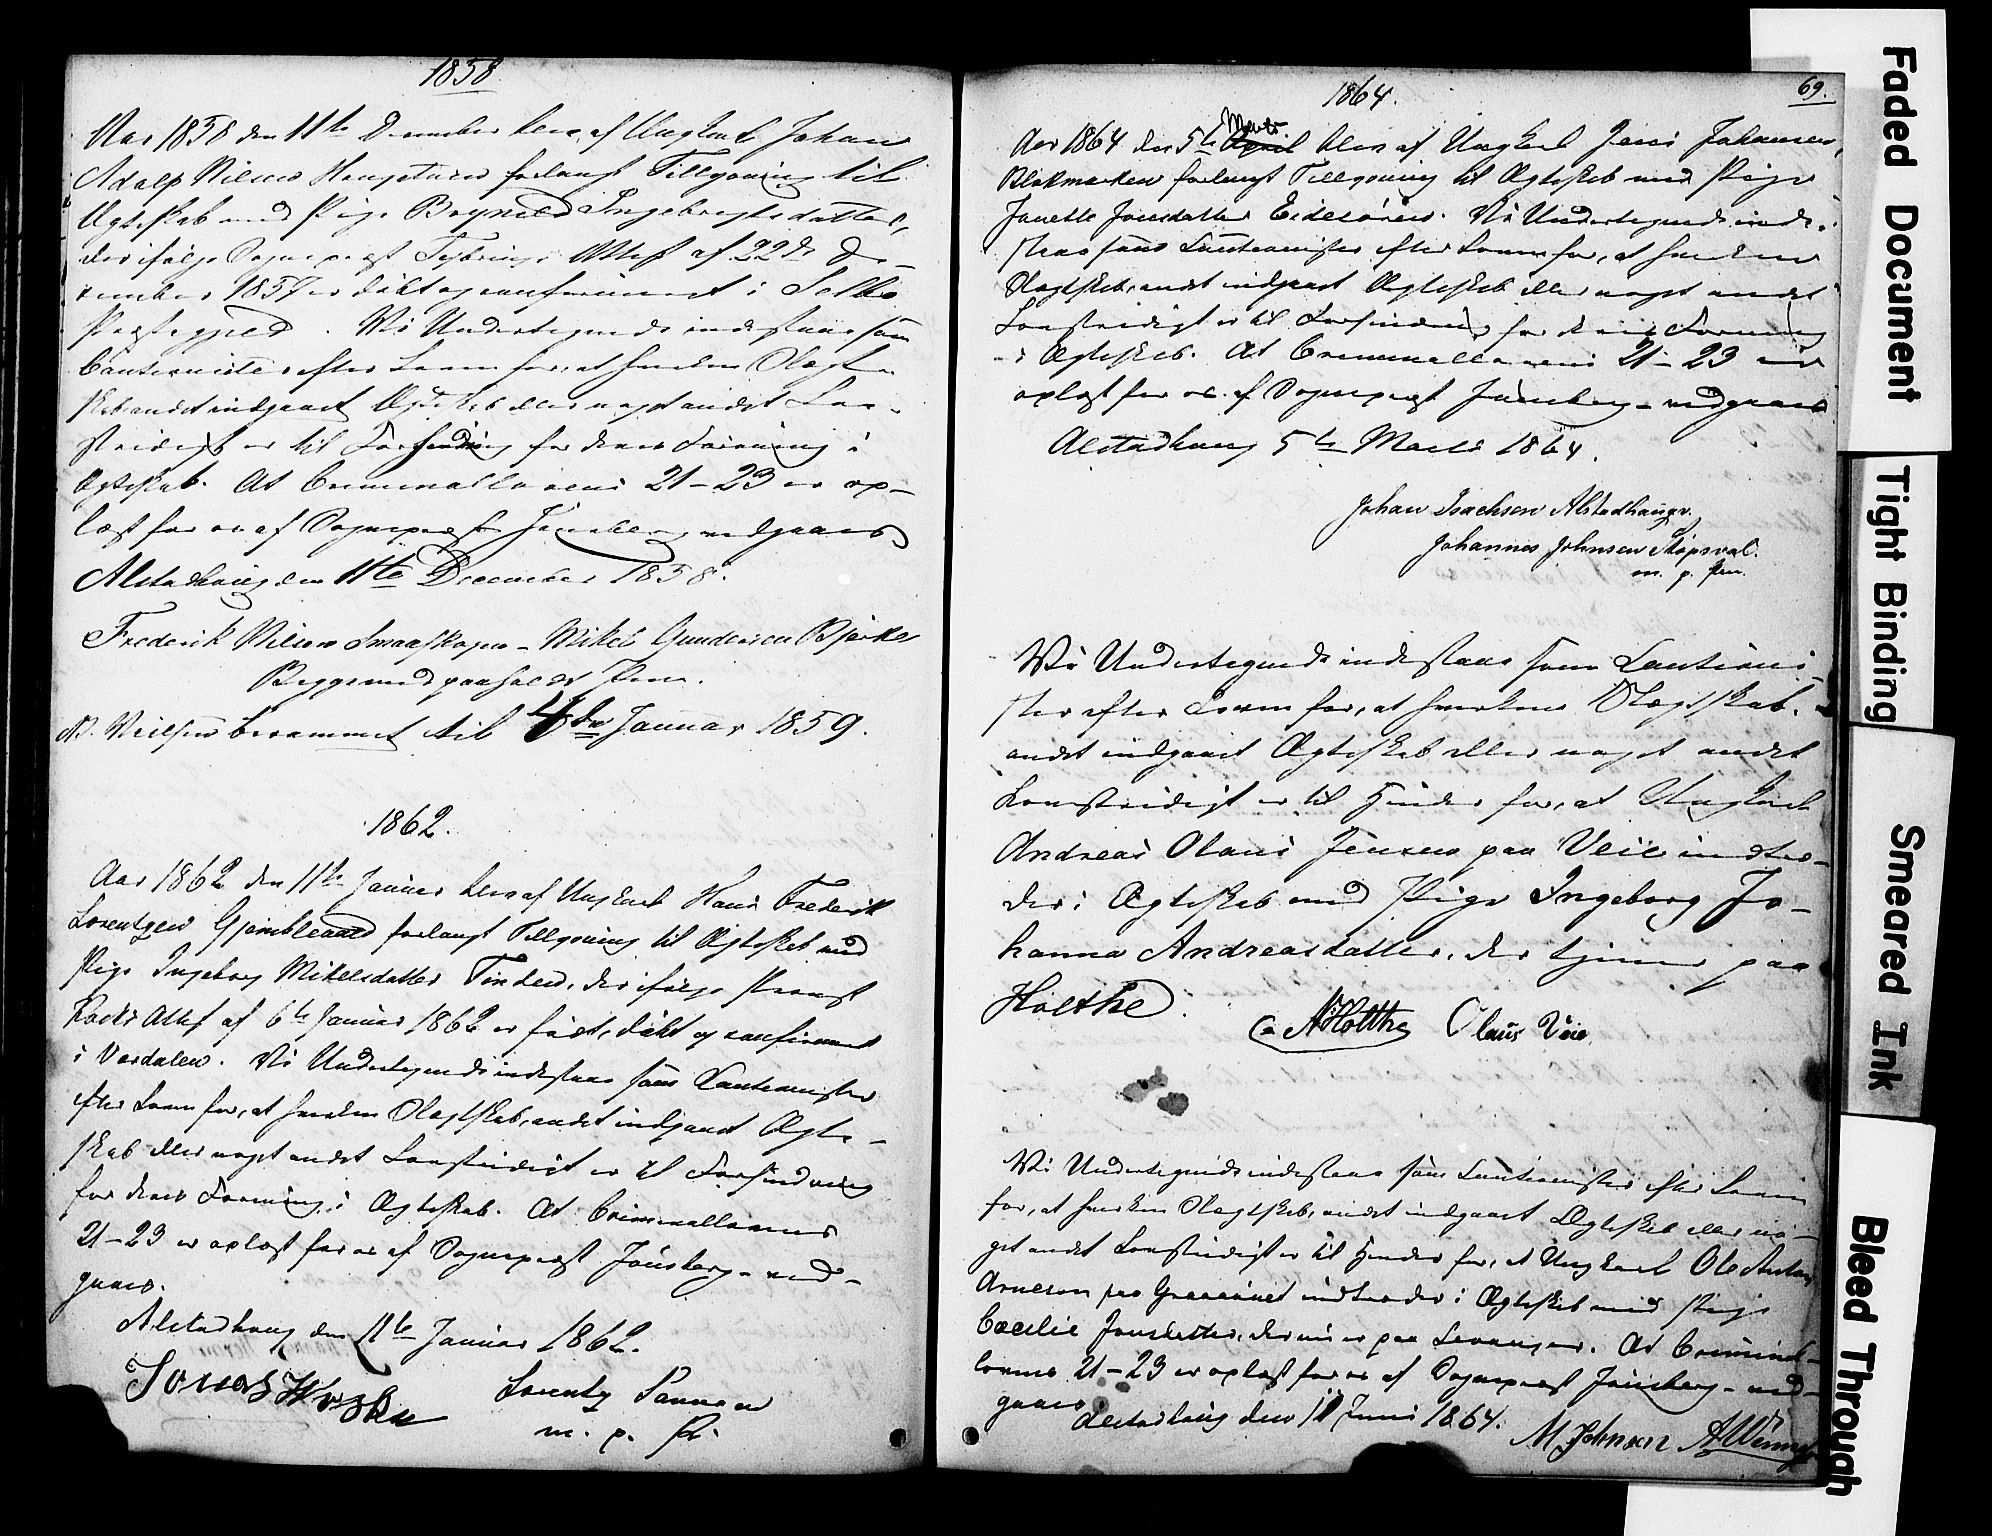 1858
Aar 1858 den 11te December blev af Ungkarl Johan
Adolf Nilsen Haugsturen forlangt Tillysning til
Ægteskab med Pige Ingebrigtsdatter,
der ifølge Sognepræst Attest af 22de De-
cember 1857 er døbt og confirmeret i Selbo
Præstegjeld. Vi Undertegnede indestaae som
Cautionister efter Loven for, at hverken Slægt-
skab, andet indgaaet Ægteskab eller noget andet Lov-
stridigt er til Forhindring for deres Forening i
Ægteskab. At Criminallovens 21-23 er op-
læst for os af Sognepræst Jönsberg vedgaaes
Alstadhaug den 11te December 1858.
Frederik Nilsen Smaaskogen - Mikel Gundersen Bjerke
Begge med paaholden Pen.
Vielsen berammet til 4de Januar 1859.
1862.
Aar 1862 den 11te Januar blev af Ungkarl Hans Frederik
Lorentzen Gjembleaunet forlangt Tillysning til Ægteskab med
Pige Ingeborg Mikelsdatter Tinden, der ifølge Provst
Attest af 6te Januar 1862 er født, døbt og confirmeret
i Verdalen. Vi Undertegnede indestaae som Cautionister
efter Loven for, at hverken Slægtskab, andet indgaaet Ægte-
skab eller noget andet Lovstridigt er til Forhindring
for deres Forening i Ægteskab. At Criminallovens
21-23 er oplæst for os af Sognepræst Jönsberg - ved-
gaaes.
Alstadhaug den 11te Januar 1862.
Lorents
m. p. P.
69.
1864.
Marts
Aar 1864 den 5te April blev af Ungkarl Jens Johansen,
forlangt Tillysning til Ægteskab med Pige
Janette Jonsdatter Eidesören. Vi Undertegnede inde-
staae som Cautionister efter Loven for, at hverken
Slægtskab, andet indgaaet Ægteskab eller noget andet
Lovstridigt er til Forhindring for deres Forening
i Ægteskab. At Criminallovens 21-23 er
oplæst for os af Sognepræst Jönsberg - vedgaaes
Alstadhaug 5te Marts 1864.
Johan Isachsen Alstadhaug
Johannes Johnsen
m. p. Pen.
Vi Undertegnede indestaae som Cautioni-
ster efter Loven for, at hverken Slægtskab,
andet indgaaet Ægteskab eller noget andet
Lovstridigt er til Hinder for, at Ungkarl
Andreas Olaus Jensen paa Veie indtræ-
der i Ægteskab med Pige Ingeborg Jo-
hanna Andreasdatter, der tjener paa
Holthe.
A Holthe Olaus Veie
Vi Undertegnede indestaae som Cautionister efter Loven
for, at hverken Slægtskab, andet indgaaet Ægteskab eller no-
get andet Lovstridigt er til Hinder for, at Ungkarl Ole Anton
Arneson paa indtræder i Ægteskab med Pige
Cæcilie Jonsdatter, der nu er paa Levanger. At Criminal-
lovens 21-23 er oplæst for os af Sognepræst Jönsberg - ved-
gaaes
Alstadhaug den 11 Juni 1864.
M Johnsen
Faded Document
Tight Binding
Smeared Ink
Bleed Through